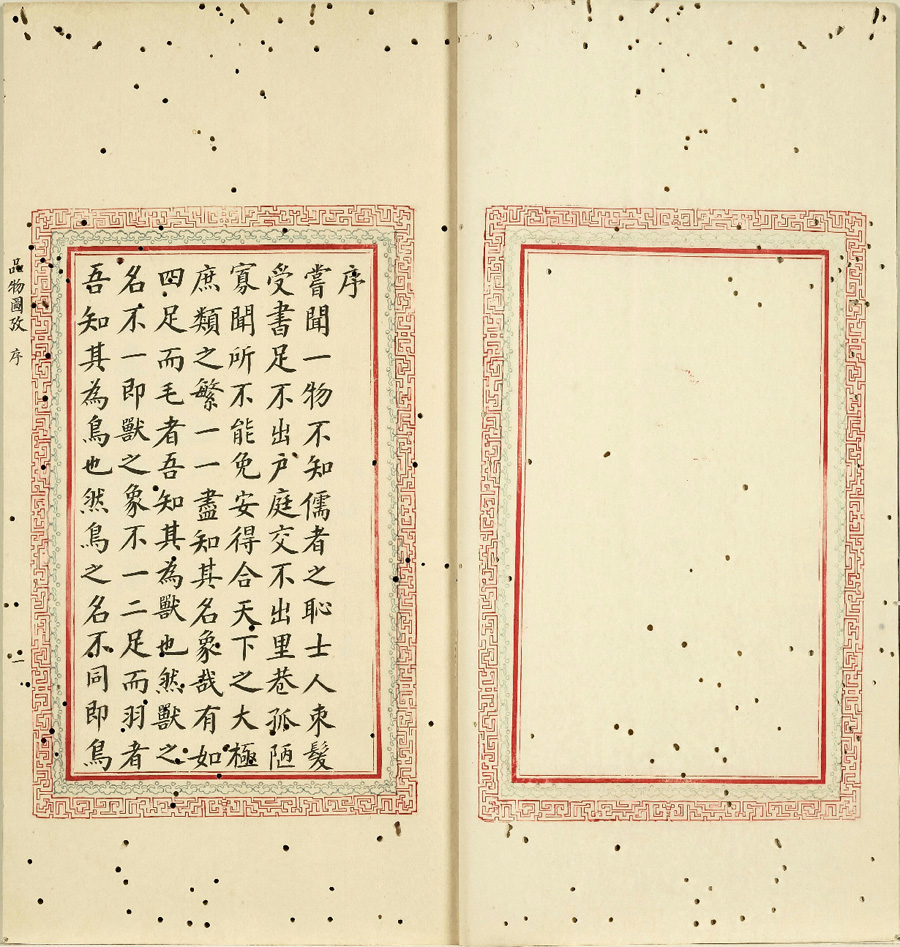 序
嘗聞一物不知儒者之恥士人束髮
受書足不出戶庭交不出里巷孤陋
寡聞所不能免安得合天下之大極
庶類之繁一一盡知其名象哉有如
四足而毛者吾知其為獸也然獸之
名不一即獸之象不一二足而羽者
吾知其為鳥也然鳥之名不同即鳥
品物圖攷 序
一